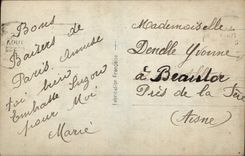 Bons
Baisers de
Paris. Amuse
toi bien
Embrasse Suzon
pour Moi
Marie
Fabrication Française
Mademoiselle
Denelle Yvonne
à Beautor
Près de la Fère
Aisne